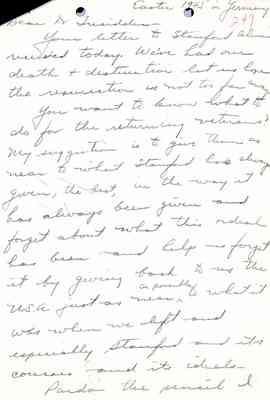 Easter 1945 in Germany
Dear Dr Tresidder -
Your letter to Stanford Alumni
received today. We've had our
death & destruction let us hope
the resurrection is not too far away
You want to know what to
do for the returning veterans?
My suggestion is to give them as
near to what Stanford has always
given, the best, in the way it
has always been given and
forget about what this ordeal
has been and help us forget
it by giving back to us the
U.S.A. just as near as possible to what it
was when we left and
especially Stanford and its
courses and its ideals.
Pardon the pencil I